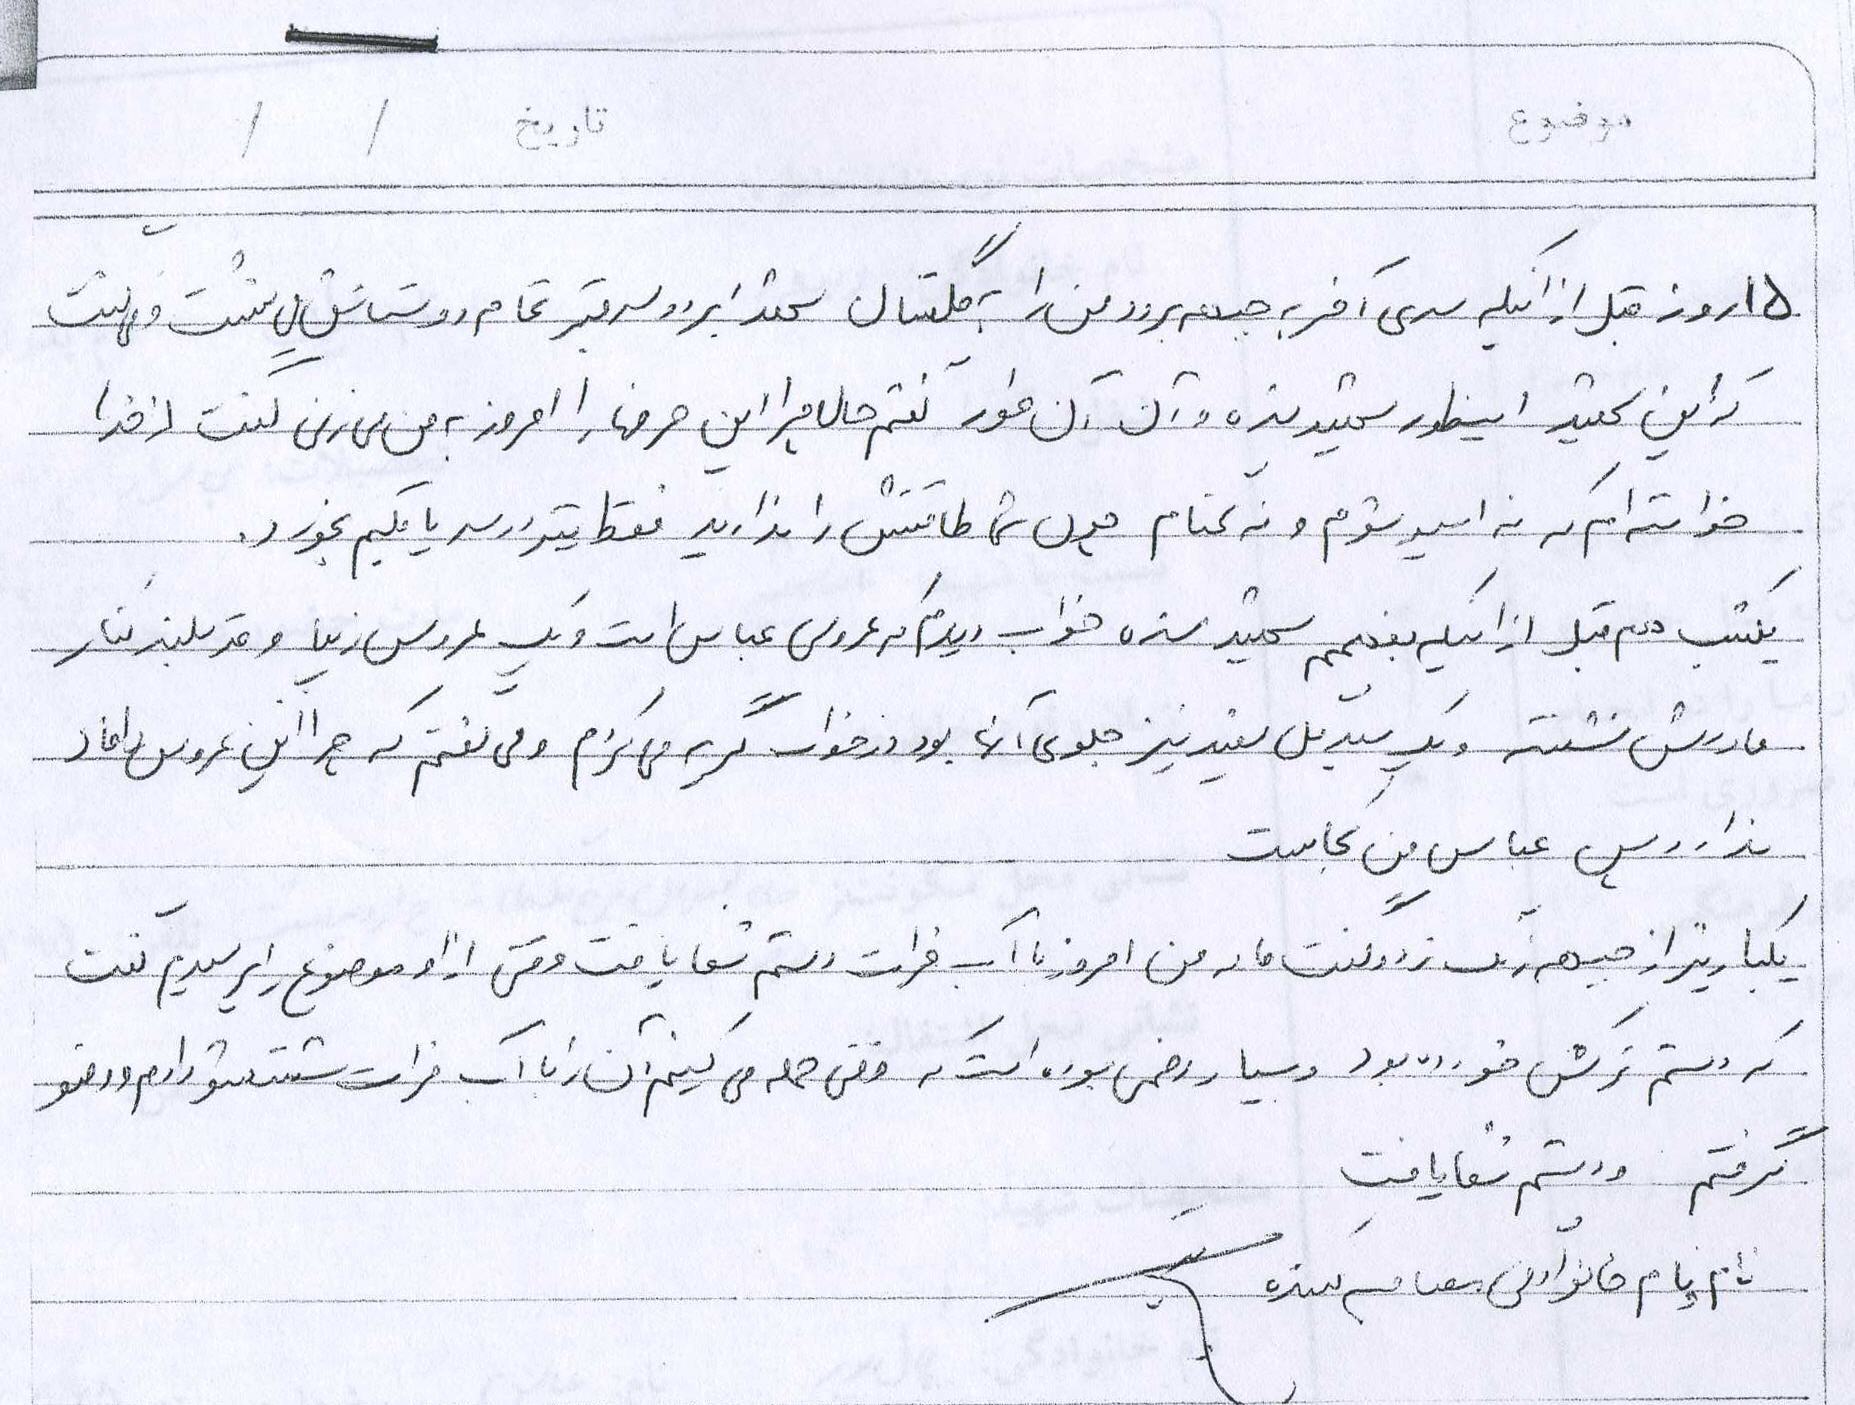 موضوع تاریخ / /
۱۵ روز قبل از اینکه سری آخر به جبهه برود من را به گلستان شهدا برد و سر قبر تمام دوستانش می نشست و می گفت
که این شهید اینطور شهید شده و آن آن طور گفتم حالا چرا این حرفها را امروز به من می زنی گفت از خدا
خواسته ام که نه اسیر شوم و نه گمنام چون شما طاقتش را ندارید فقط تیر در سر یا قلبم بخورد.
یکشب هم قبل از اینکه بفهمم شهید شده خواب دیدم که عروسی عباس است و یک عروس زیبا و قد بلند کنار
مادرش نشسته و یک سبد گل سفید نیز جلوی آنها بود در خواب گریه می کردم و می گفتم که چرا این عروس داماد
ندارد پس عباس من کجاست
یکبار نیز از جبهه زنگ زد و گفت مادر من امروز با آب فرات دستم شفا یافت وقتی از او موضوع را پرسیدم گفت
که دستم ترکش خورده بود و بسیار زخمی بوده است که وقتی حمله می کنیم آن را با آب فرات شستشو دادم و وضو
گرفتم و دستم شفا یافت
نام و نام خانوادگی مصاحبه کننده